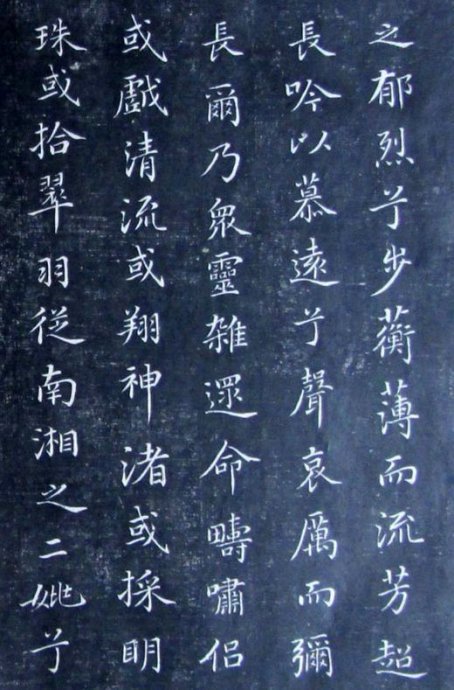 之郁烈兮步蘅薄而流芳超
長吟以慕遠兮聲哀厲而彌
長爾乃眾靈雜遝命疇嘯侶
或戲清流或翔神渚或採眀
珠或拾翠羽從南湘之二妣兮